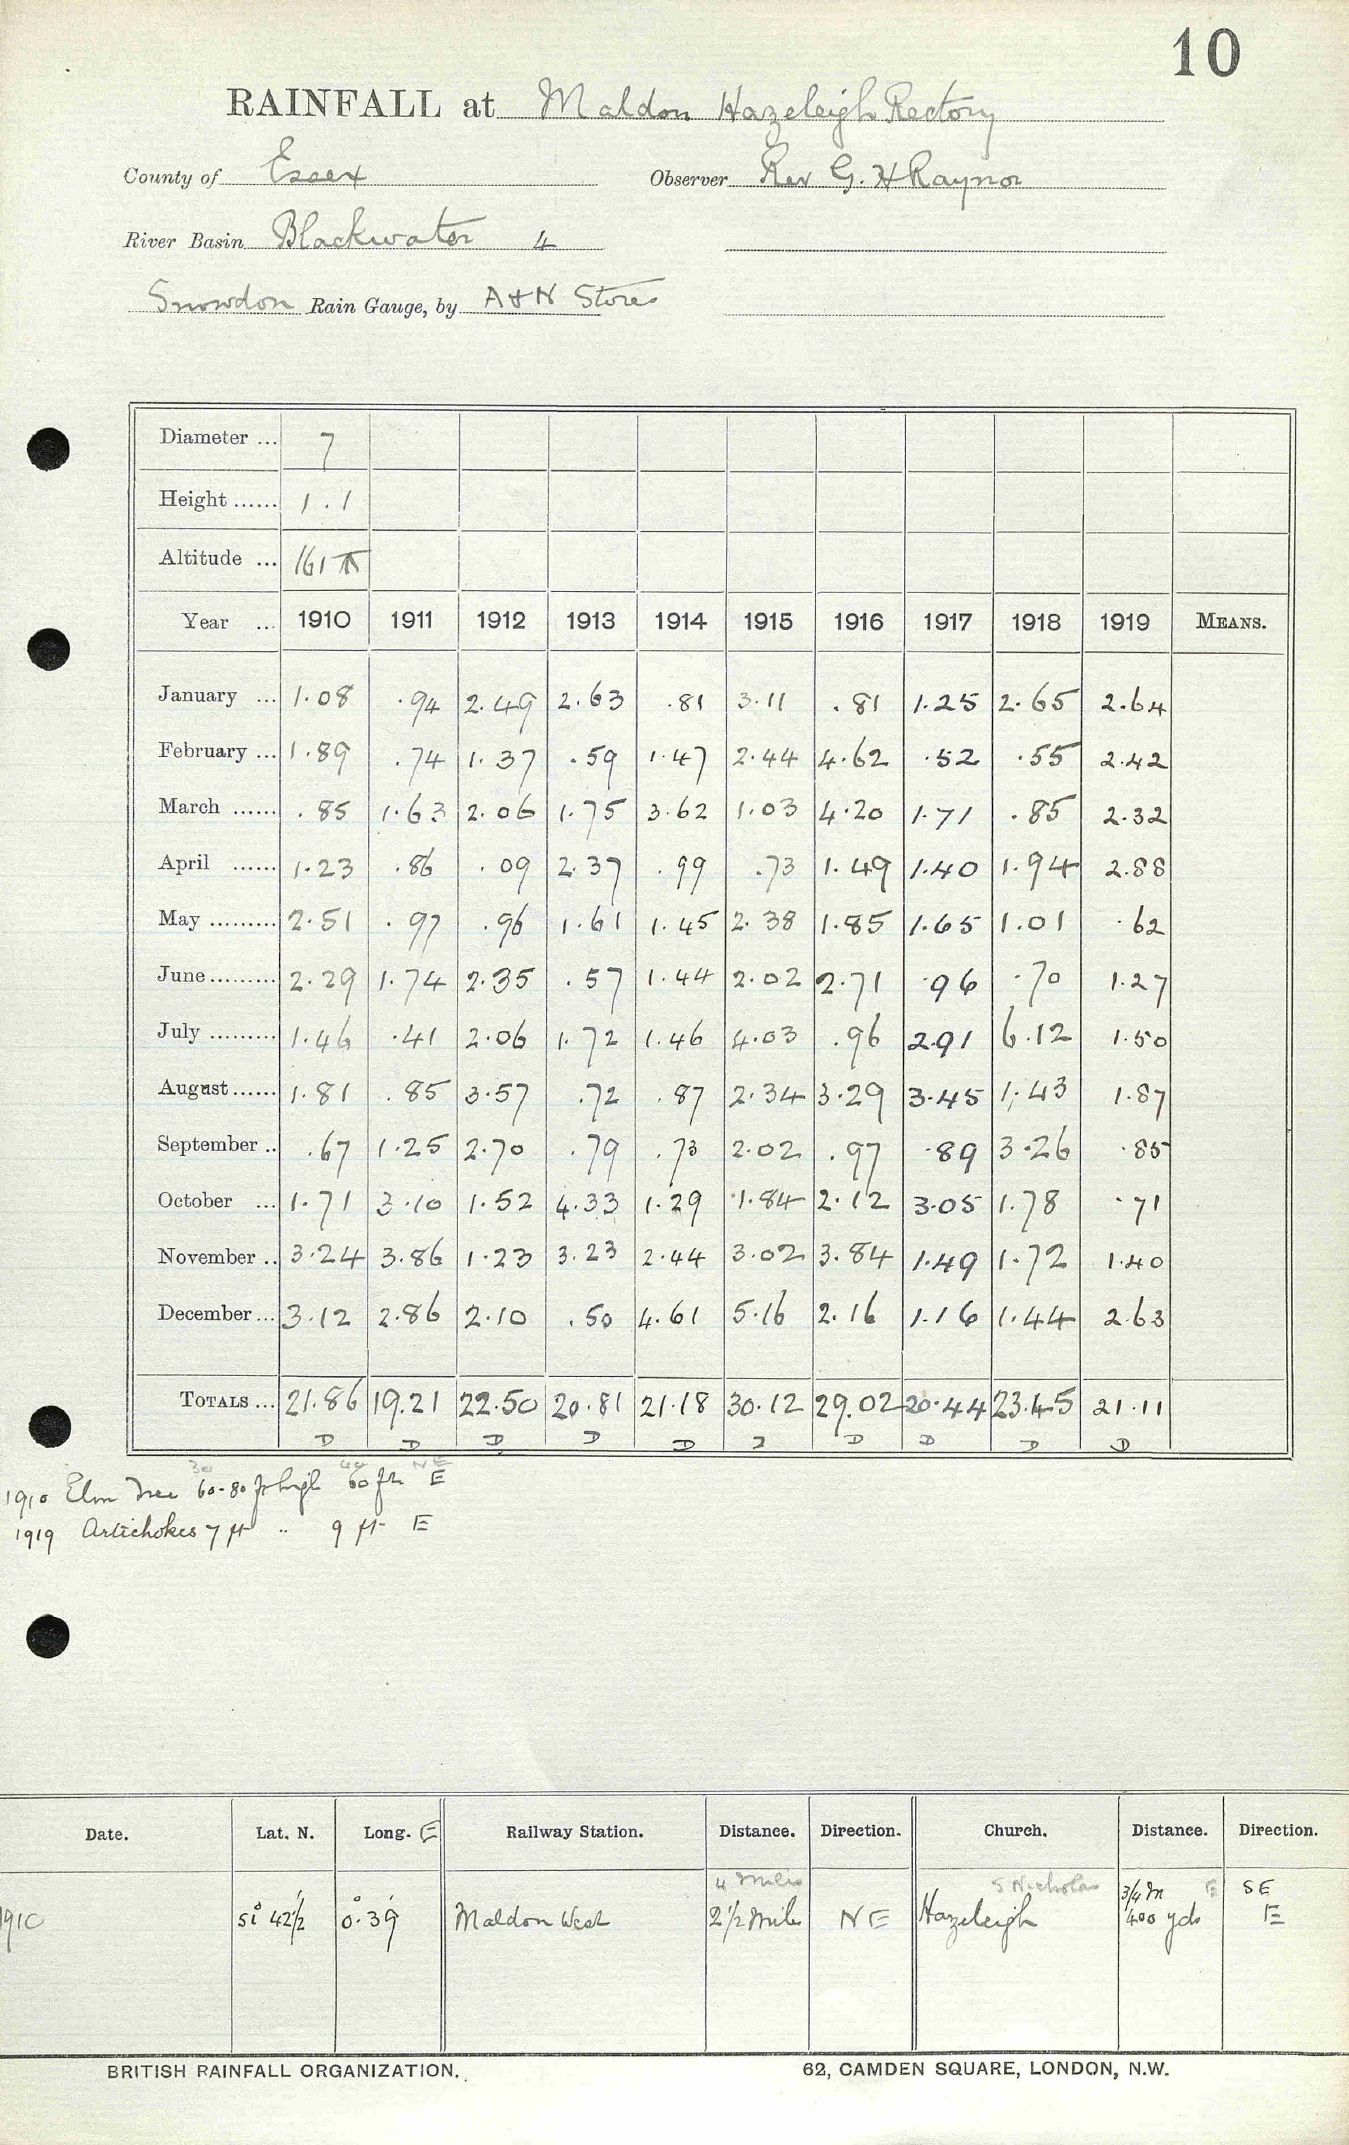 10
RAINFALL at Maldon Hazeleigh Rectory
County of Essex Observer Rev G. H Raynor
River Basin Blackwater 4
Snowdon Rain Gauge, by A & N Stores
Diameter ... 7
Height ...... 1.1
Altitude ... 161 ft
Year ... 1910 1911 1912 1913 1914 1915 1916 1917 1918 1919 MEANS.
January ... 1.08 .94 2.49 2.63 .81 3.11 .81 1.25 2.65 2.64
February ... 1.89 .74 1.37 .59 1.47 2.44 4.62 .52 .55 2.42
March ...... .85 1.63 2.06 1.75 3.62 1.03 4.20 1.71 .85 2.32
April ...... 1.23 .86 .09 2.37 .99 .73 1.49 1.40 1.94 2.88
May ......... 2.51 .97 .96 1.61 1.45 2.38 1.85 1.65 1.01 .62
June ......... 2.29 1.74 2.35 .57 1.44 2.02 2.71 .96 .70 1.27
July ......... 1.46 .41 2.06 1.72 1.46 4.03 .96 2.91 6.12 1.50
August ...... 1.81 .85 3.57 .72 .87 2.34 3.29 3.45 1.43 1.87
September .. .67 1.25 2.70 .79 .73 2.02 .97 .89 3.26 .85
October ... 1.71 3.10 1.52 4.33 1.29 1.84 2.12 3.05 1.78 .71
November .. 3.24 3.86 1.23 3.23 2.44 3.02 3.84 1.49 1.72 1.40
December ... 3.12 2.86 2.10 .50 4.61 5.16 2.16 1.16 1.44 2.63
TOTALS ... 21.86 19.21 22.50 20.81 21.18 30.12 29.02 20.44 23.45 21.11
D D D D D D D D D D
30 NE
1910 Elm Tree 60-80 ft high 60 ft E
1919 Artichokes 7 ft " 9 ft E
Date. Lat. N. Long. E Railway Station. Distance. Direction. Church. Distance. Direction.
4 miles S Nicholas 3/4 m E SE
1910 51° 42½' 0° 39' Maldon West 2½ miles NE Hazeleigh 400 yds E
BRITISH RAINFALL ORGANIZATION. 62, CAMDEN SQUARE, LONDON, N.W.